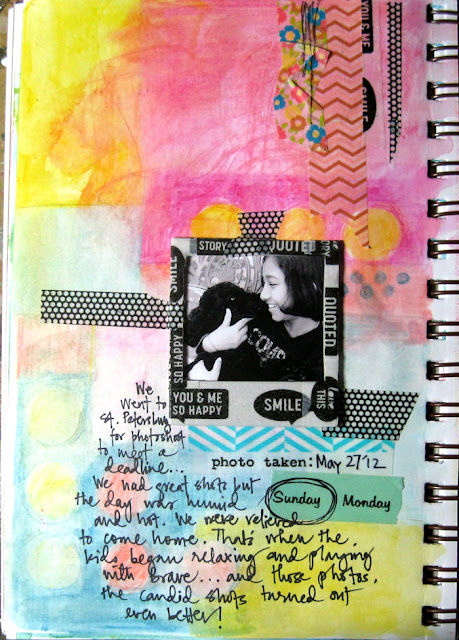 YOU & ME
SMILE
STORY QUOTED
SMILE
SO HAPPY
QUOTED
LOVE
YOU & ME
SO HAPPY
SMILE
love
THIS
photo taken: May 27'12
Sunday Monday
We
went to
St. Petersburg
for photoshoot
to meet a
deadline...
We had great shots but
the day was humid
and hot. We were relieved
to come home. That's when the
kids began relaxing and playing
with brave... and those photos,
the candid shots turned out
even better!